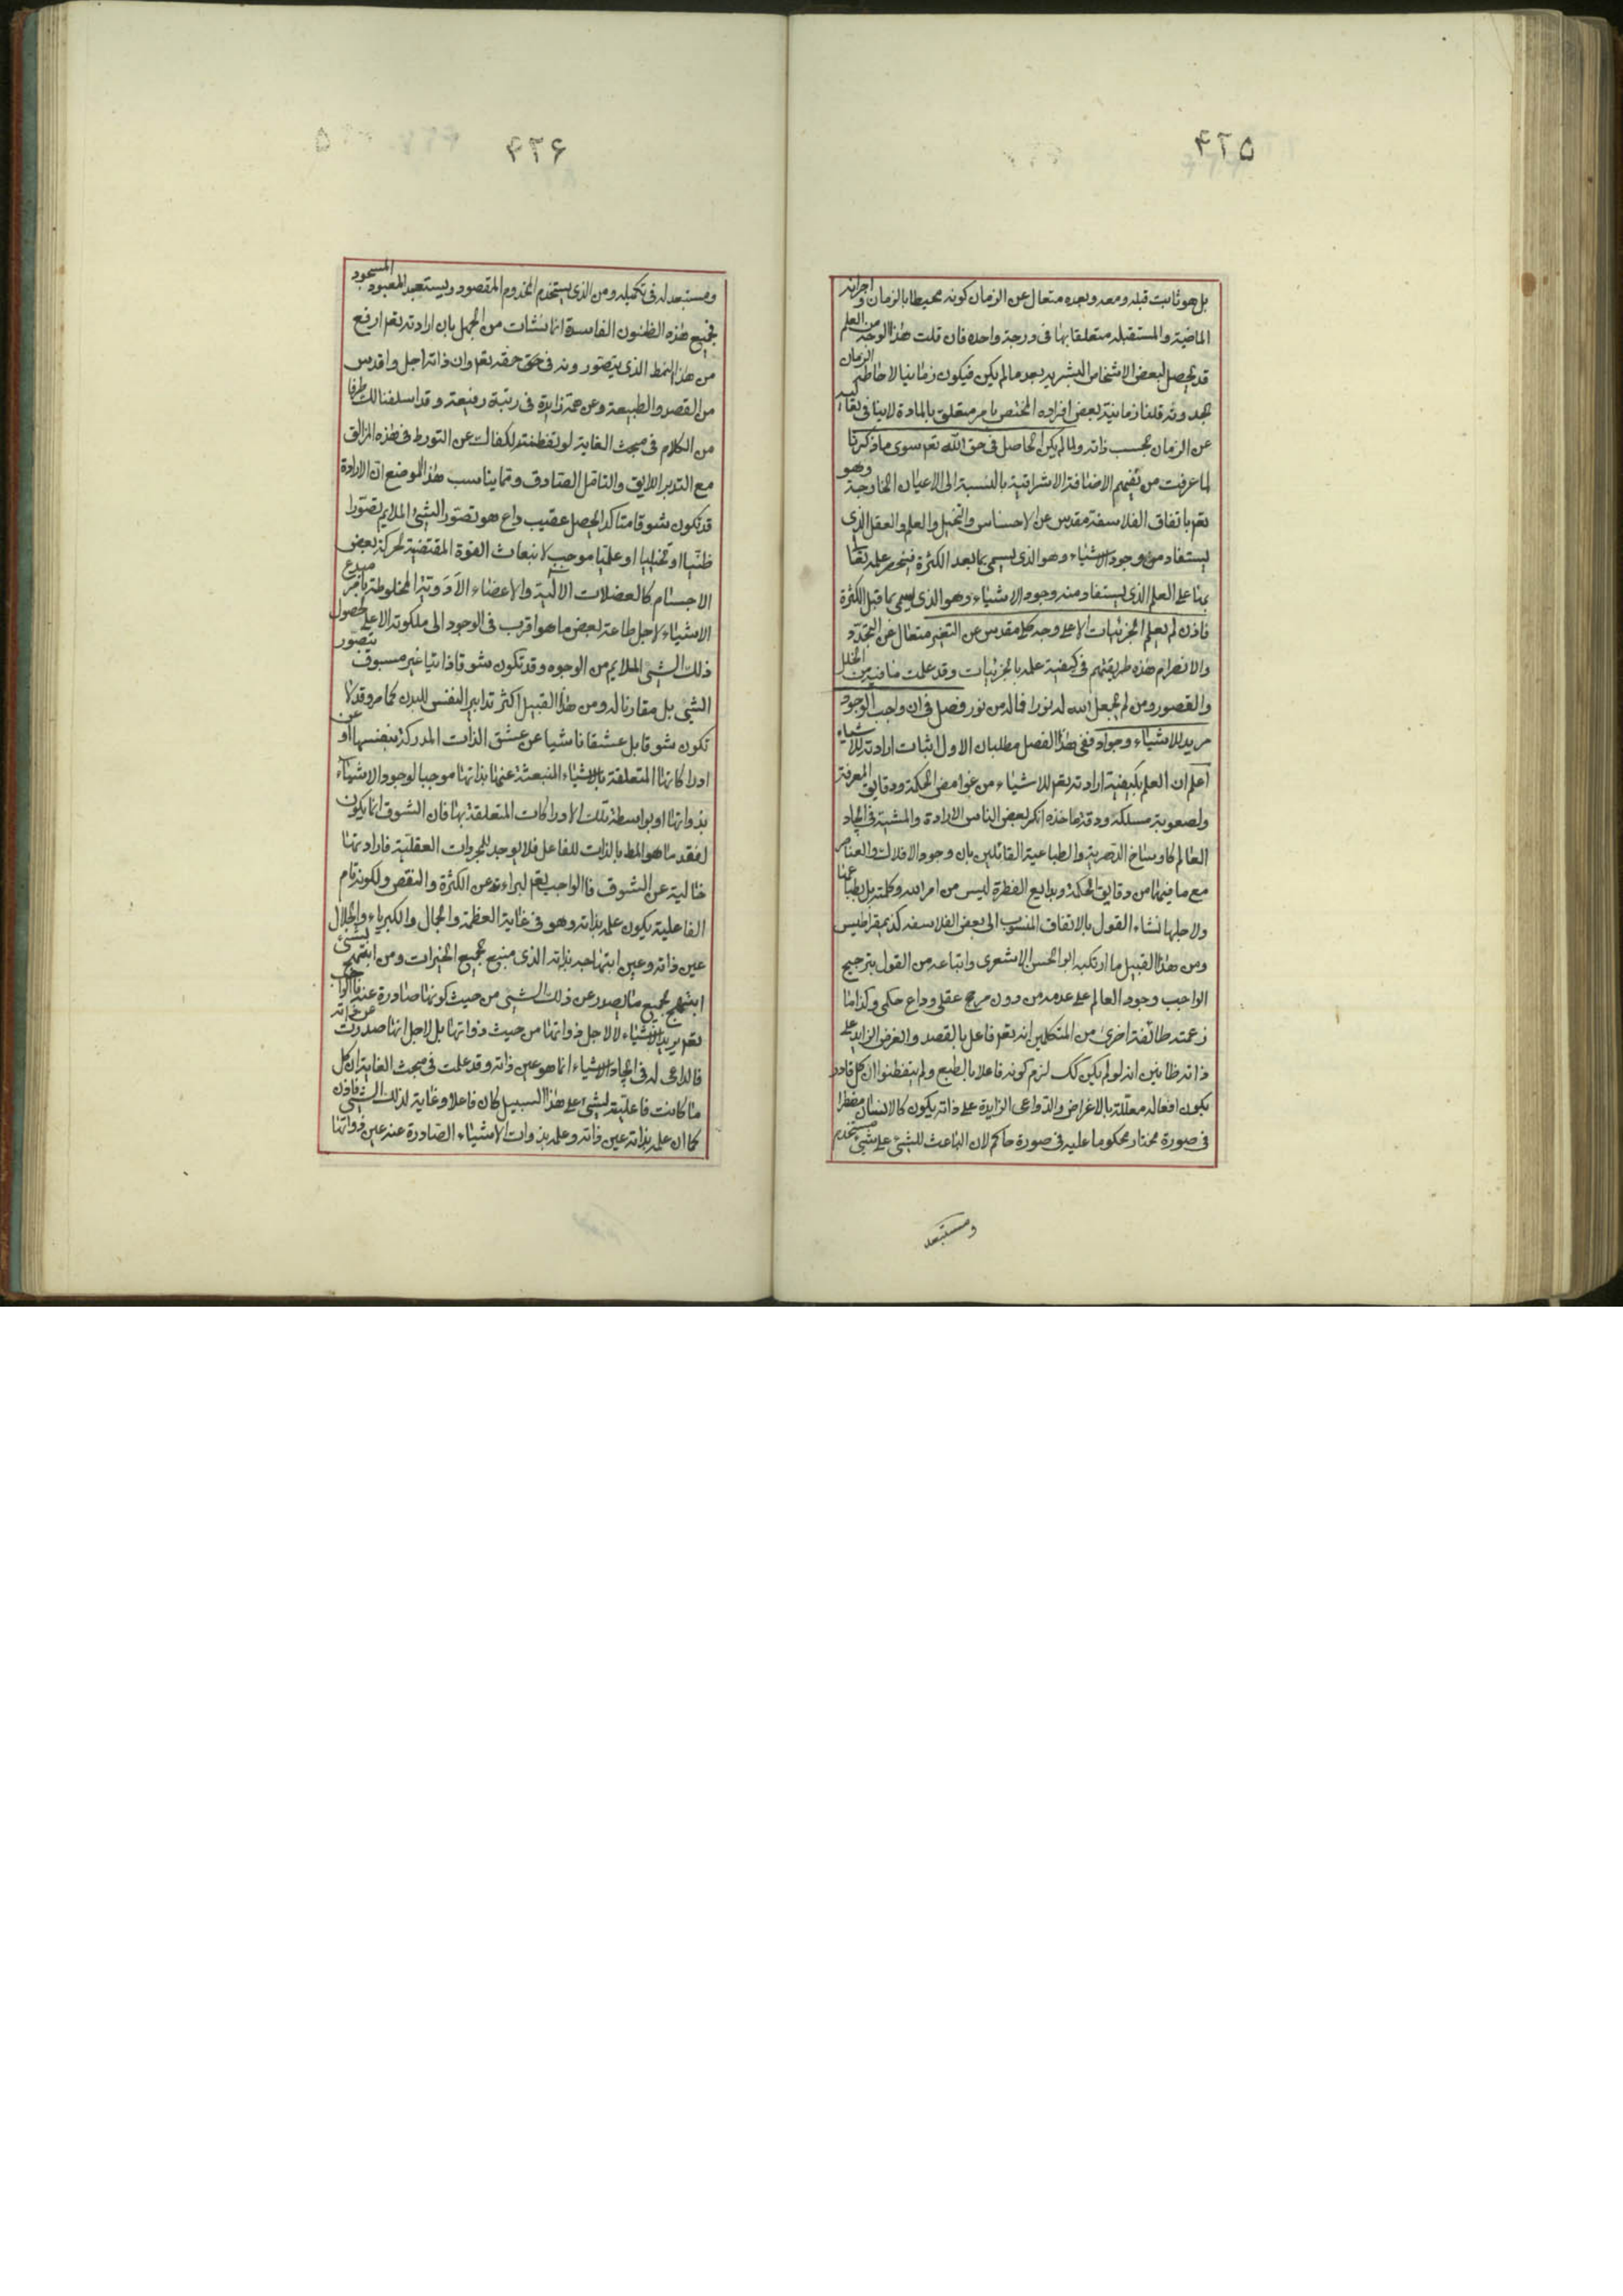 ۴۲۵
بل هو ثابت قبله و معه و بعده متعال عن الزمان كونه محيطا بالزمان و اجزائه
الماضية والمستقبله متعلقا بها فى درجة واحده فان قلت هذا الوجه من العلم
قد يحصل لبعض الاشخاص البشريه بعد ما لم يكن فيكون زمانيا لاحاطة الزمان
بحدوثه قلنا زمانية بعض افراده المختص بامر متعلق بالمادة لاينافى تقدسه
عن الزمان بحسب ذاته ولما لم يكن الحاصل فى حق الله تعم سوى ما ذكرنا
لما عرفت من نفيهم الاضافة الاشراقية بالنسبة الى الاعيان الخارجة وهو
تعم باتفاق الفلاسفة مقدس عن الاحساس والتخيل والعلم والعقل الذى
يستفاد من وجود الاشياء وهو الذى يسمى بما بعد الكثرة فينحصر علمه تعالى
بمنا على العلم الذى يستفاد منه وجود الاشياء وهو الذى يسمى بما قبل الكثرة
فاذن لم يعلم الجزئيات الا على وجه كلى مقدس عن التغير متعال عن التجدد
والانصرام هذه طريقتهم فى كيفية علمه بالجزئيات وقد علمت ما فيه من الخلل
والقصور ومن لم يجعل الله له نورا فما له من نور فصل فى ان واجب الوجود
مريد للاشياء وجواد ففى هذا الفصل مطلبان الاول اثبات ارادته للاشياء
اعلم ان العلم بكيفية ارادته تعم للاشياء من غوامض الحكمة ودقايق المعرفة
ولصعوبة مسلكه ودقة ماخذه انكر بعض الناس الارادة والمشية فى ايجاد
العالم كاوساخ الدهرية والطباعية القائلين بان وجود الافلاك والعناصر
مع ما فيهما من دقايق الحكمة وبدايع الفطرة ليس من امر الله وكلمته بل بطباعها
ولاجلها نشاء القول بالاتفاق المنسوب الى بعض الفلاسفه كذيمقراطيس
ومن هذا القبيل ما ارتكبه ابو الحسن الاشعرى واتباعه من القول بترجيح
الواجب وجود العالم على عدمه من دون مرجح عقلى وداع حكمى وكذا ما
زعمته طائفة اخرى من المتكلمين انه تعم فاعل بالقصد والغرض الزايد على
ذاته ظانين انه لو لم يكن كك لزم كونه فاعلا بالطبع ولم يتفطنوا ان كل قادر
يكون افعاله معللة بالاغراض والدواعى الزايدة على ذاته يكون كالانسان مضطرا
فى صورة مختار محكوما عليه فى صورة حاكم لان الباعث للشئ على شئ مستخدم
ومستبعد
۴۲۶
ومستبعد له فى تكميله ومن الذى يستخدم المخدوم المقصود ويستعبد المعبود المسجود
فجميع هذه الظنون الفاسدة انما نشات من الجهل بان ارادته تعم ارفع
من هذا النمط الذى يتصورونه فى حق حقه تعم وان ذاته اجل واقدس
من القصد والطبيعة وعن همة زايدة فى رتبة رفيعة وقد اسلفنا لك طرفا
من الكلام فى مبحث الغاية لو تفطنته لكفاك عن التورط فى هذه المزالق
مع التدبر اللايق والتامل الصادق ومما يناسب هذا الموضع ان الارادة
قد تكون شوقا متاكدا يحصل عقيب داع هو تصور الشئ الملايم تصورا
ظنيا او تخيليا او علميا موجب لانبعاث القوة المقتضية لحركة بعض
الاجسام كالعضلات الالية والاعضاء الادوية المخلوطة بامر مبدع
الاشياء لاجل طاعة بعض ما هو اقرب فى الوجود الى ملكوته الاعلى لحصول
ذلك الشى الملايم من الوجوه وقد تكون شوقا ذاتيا غير مسبوق بتصور
الشى بل مقارنا له ومن هذا القبيل اكثر تدابير النفس للبدن كما مر وقد لا
تكون شوقا بل عشقا ناشيا عن عشق الذات المدركة بنفسها او عن
ادراكاتها المتعلقة بالاشياء المنبعثة عنها بذاتها موجبا لوجود الاشياء
بذواتها او بواسطة تلك الادراكات المتعلقة بها فان الشوق انما يكون
لفقد ما هو المط بالذات للفاعل فلا يوجد للمجردات العقلية فارادتها
خالية عن الشوق فالواجب تعم لبراءته عن الكثرة والنقص ولكونه تام
الفاعلية يكون علمه بذاته وهو فى غاية العظمة والجمال والكبرياء والجلال
عين ذاته وعين ابتهاجه بذاته الذى منبع جميع الخيرات ومن ابتهج بشئ
ابتهج بجميع ما يصدر عن ذلك الشى من حيث كونها صادرة عنه فالواجب
تعم يريد الاشياء لا لاجل ذواتها من حيث ذواتها بل لاجل انها صدرت عن ذاته
فالداعى له فى ايجاد الاشياء انما هو عين ذاته وقد علمت فى مبحث الغاية ان كل
ما كانت فاعليته لشئ على هذا السبيل كان فاعلا وغاية لذلك الشى فاذن
كما ان علمه بذاته عين ذاته وعلمه بذوات الاشياء الصادرة عنه عين ذواتها